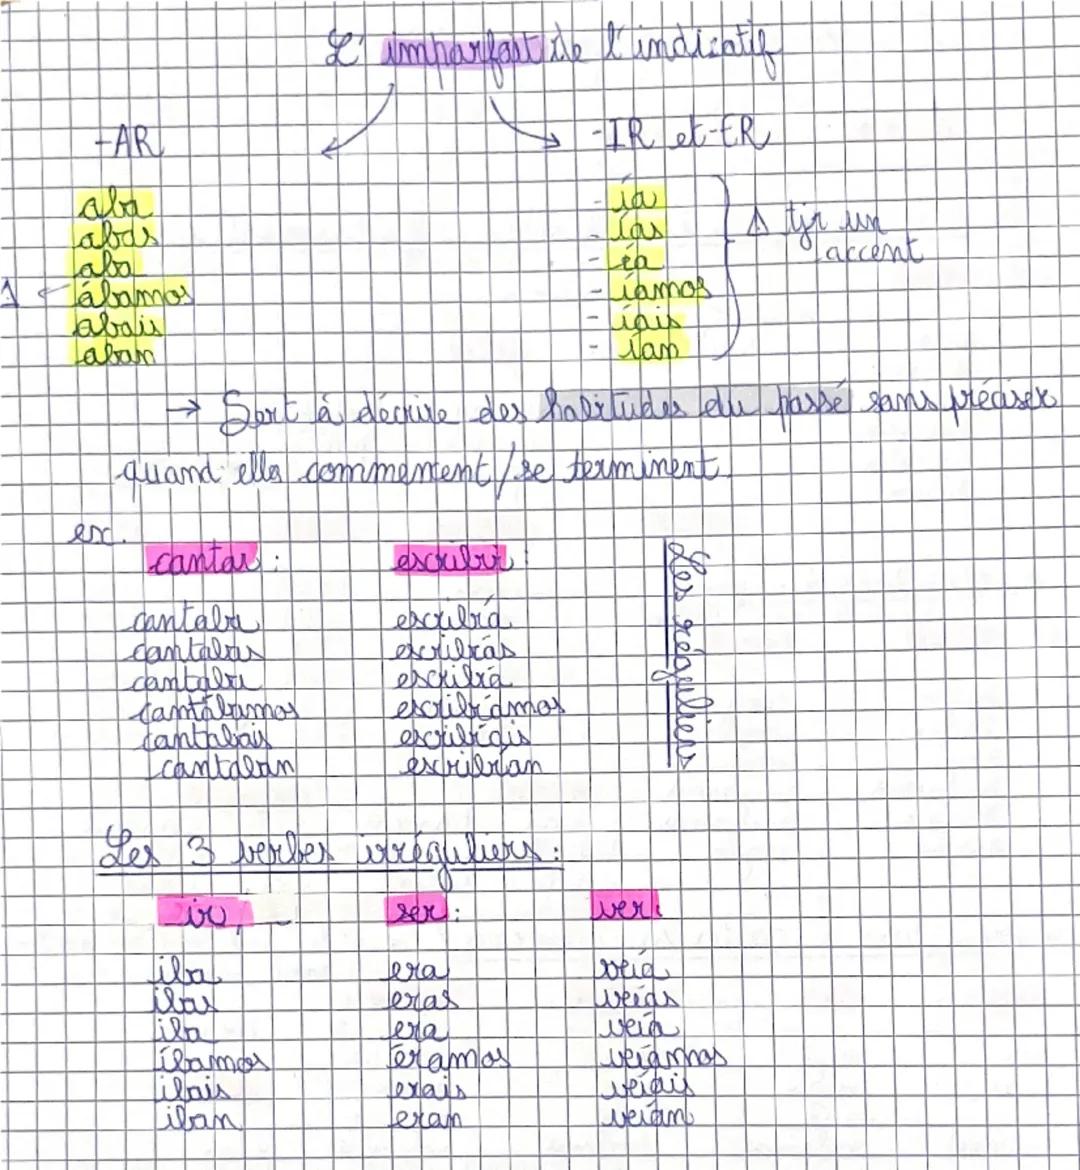 L'imparfait de l'indicatif
-AR
-IR et -ER
aba
abas
aba
ábamos
abais
aban
- ía
- ías
- ía
- íamos
- íais
- ían
⚠ tjr un
accent
→ Sert à décrire des habitudes du passé sans préciser
quand elles commencent/se terminent.
ex.
cantar :
escribir :
cantaba
cantabas
cantaba
cantábamos
cantabais
cantaban
escribía
escribías
escribía
escribíamos
escribíais
escribían
Les réguliers
Les 3 verbes irréguliers :
ir,
ser :
ver :
iba
ibas
iba
íbamos
ibais
iban
era
eras
era
éramos
erais
eran
veía
veías
veía
veíamos
veíais
veían